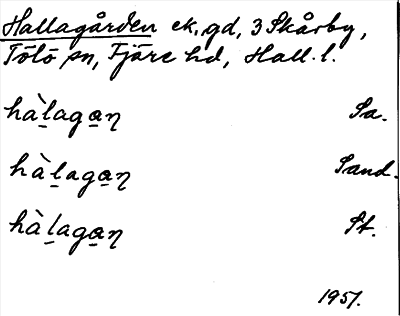 Hallagården ek. gd, 3 Skårby,
Tölö sn, Fjäre hd, Hall. l.
hàl̠aga̠ƞ Sa.
hàl̠aga̠ƞ Sand.
hàl̠aga̠ƞ St.
1951.